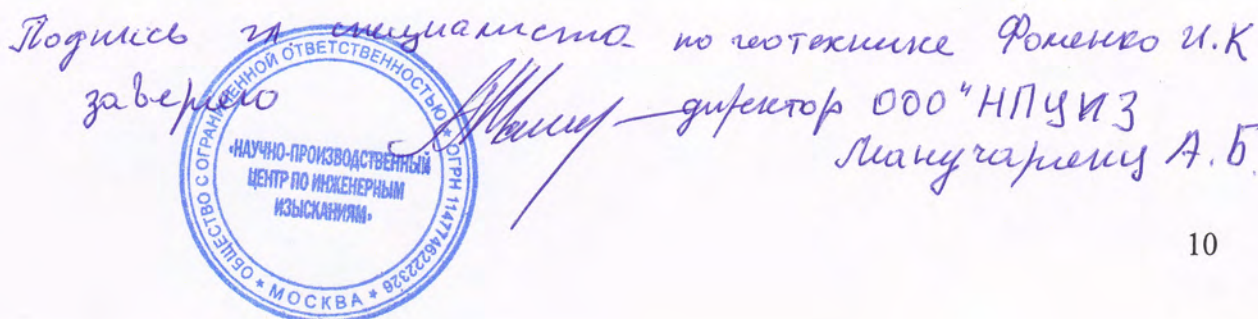 Подпись гл специалиста по геотехнике Фоменко И.К
заверяю директор ООО "НПЦИЗ
Манучарянц А.Б.
ОБЩЕСТВО С ОГРАНИЧЕННОЙ ОТВЕТСТВЕННОСТЬЮ * ОГРН 1147746222326 * МОСКВА *
«НАУЧНО-ПРОИЗВОДСТВЕННЫЙ
ЦЕНТР ПО ИНЖЕНЕРНЫМ
ИЗЫСКАНИЯМ»
10